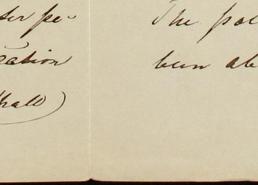 ter pe-
cation
hall)
The pol
been ab